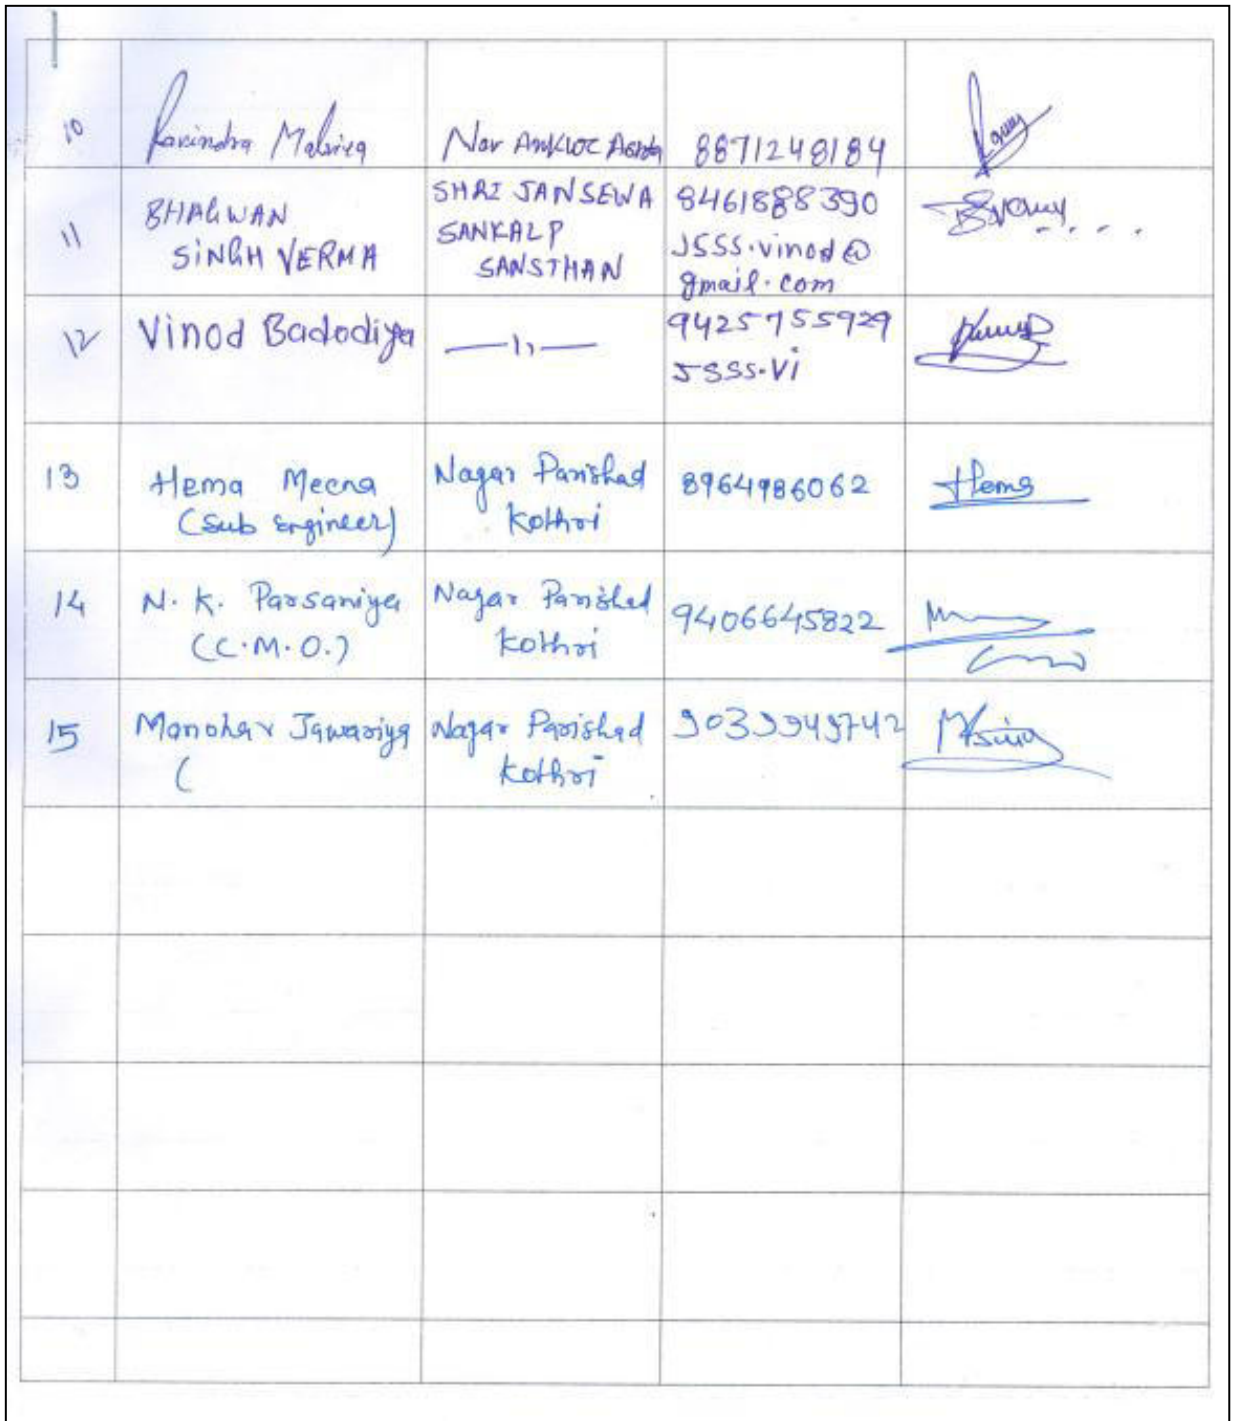 10 Ravindra Malviya Nav Ankur Ashta 8871248184
11 BHAGWAN SINGH VERMA SHRI JANSEWA SANKALP SANSTHAN 8461888390 JSSS.vinod@gmail.com
12 Vinod Badodiya —11— 9425755929 JSSS.Vi
13 Hema Meena (Sub Engineer) Nagar Parishad Kothri 8964986062 Hema
14 N. K. Parsaniya (C.M.O.) Nagar Parishad Kothri 9406645822
15 Manohar Jawariya ( Nagar Parishad Kothri 9039949742